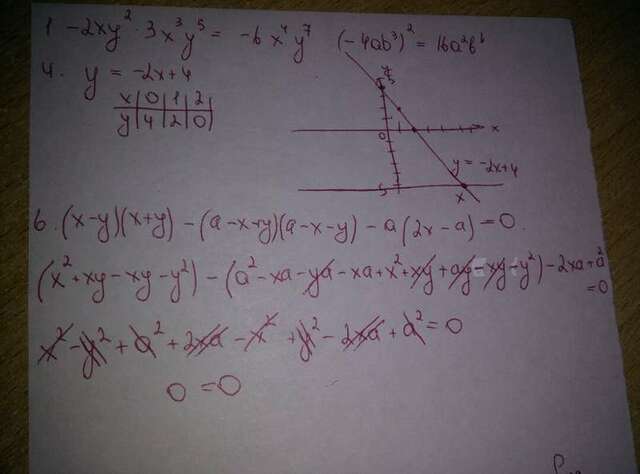 1 -2xy² · 3x³y⁵ = -6x⁴y⁷ (-4ab³)² = 16a²b⁶
4. y = -2x+4
x | 0 | 1 | 2
y | 4 | 2 | 0
y
5
0
x
y = -2x+4
5
x
6. (x-y)(x+y) - (a-x+y)(a-x-y) - a(2x-a) = 0.
(x²+xy-xy-y²) - (a²-xa-ya-xa+x²+xy+ay-xy-y²) - 2xa+a²
=0
x²-y²+a²+2xa-x²+y²-2xa+a²=0
0 = 0